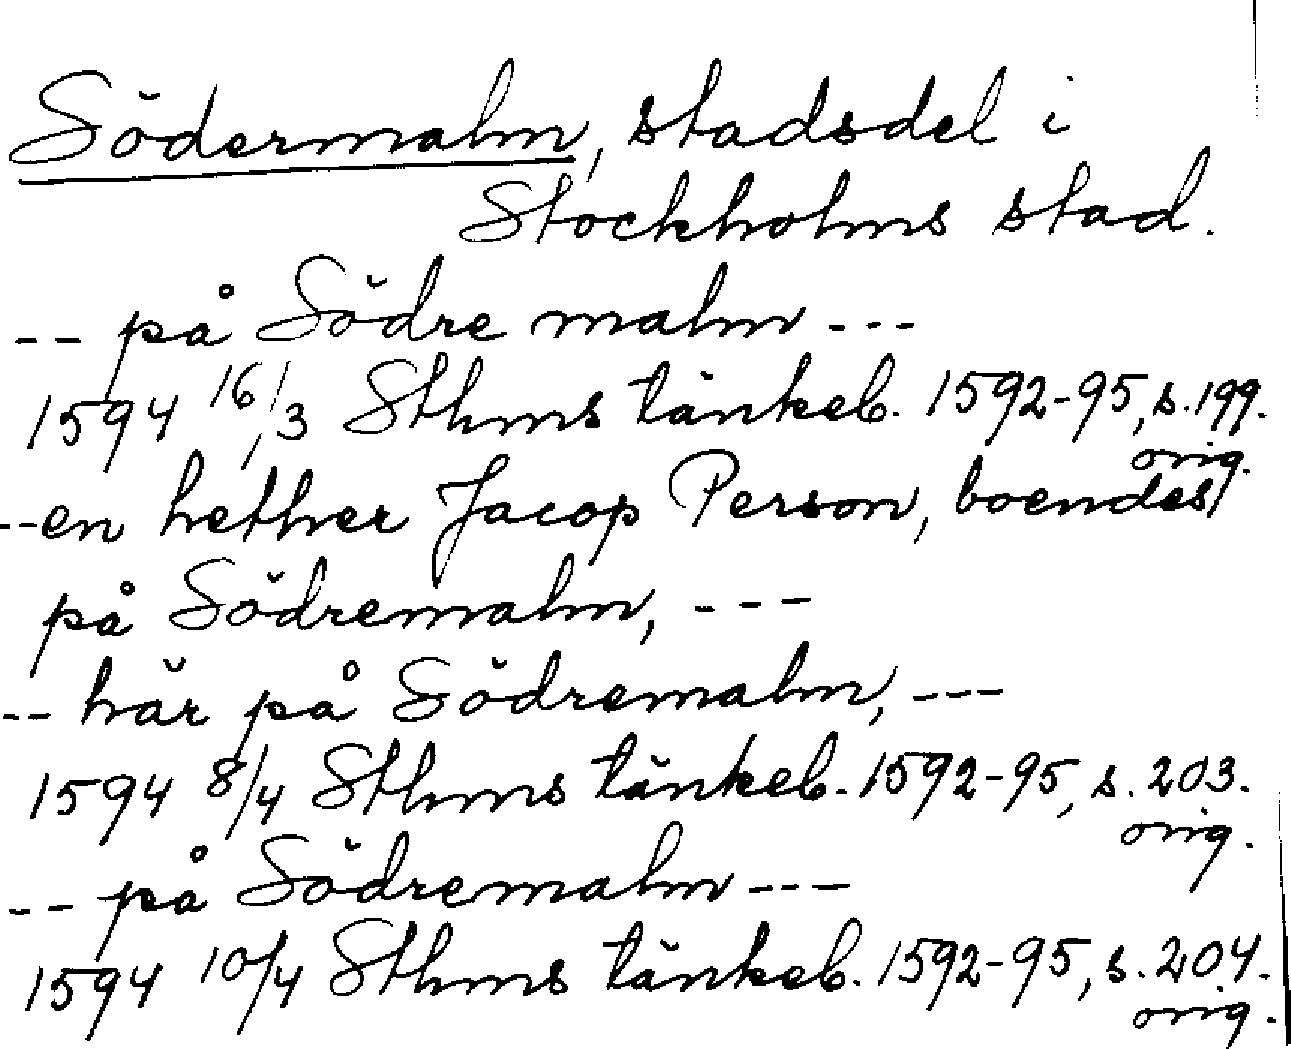 Södermalm, stadsdel i
Stockholms stad.
-- på Södre malm ---
1594 16/3 Sthms tänkeb. 1592-95, s. 199.
orig.
-- en hether Jacop Person, boendes
på Södremalm, ---
-- här på Södremalm, ---
1594 8/4 Sthms tänkeb. 1592-95, s. 203.
orig.
-- på Södremalm ---
1594 10/4 Sthms tänkeb. 1592-95, s. 204.
orig.